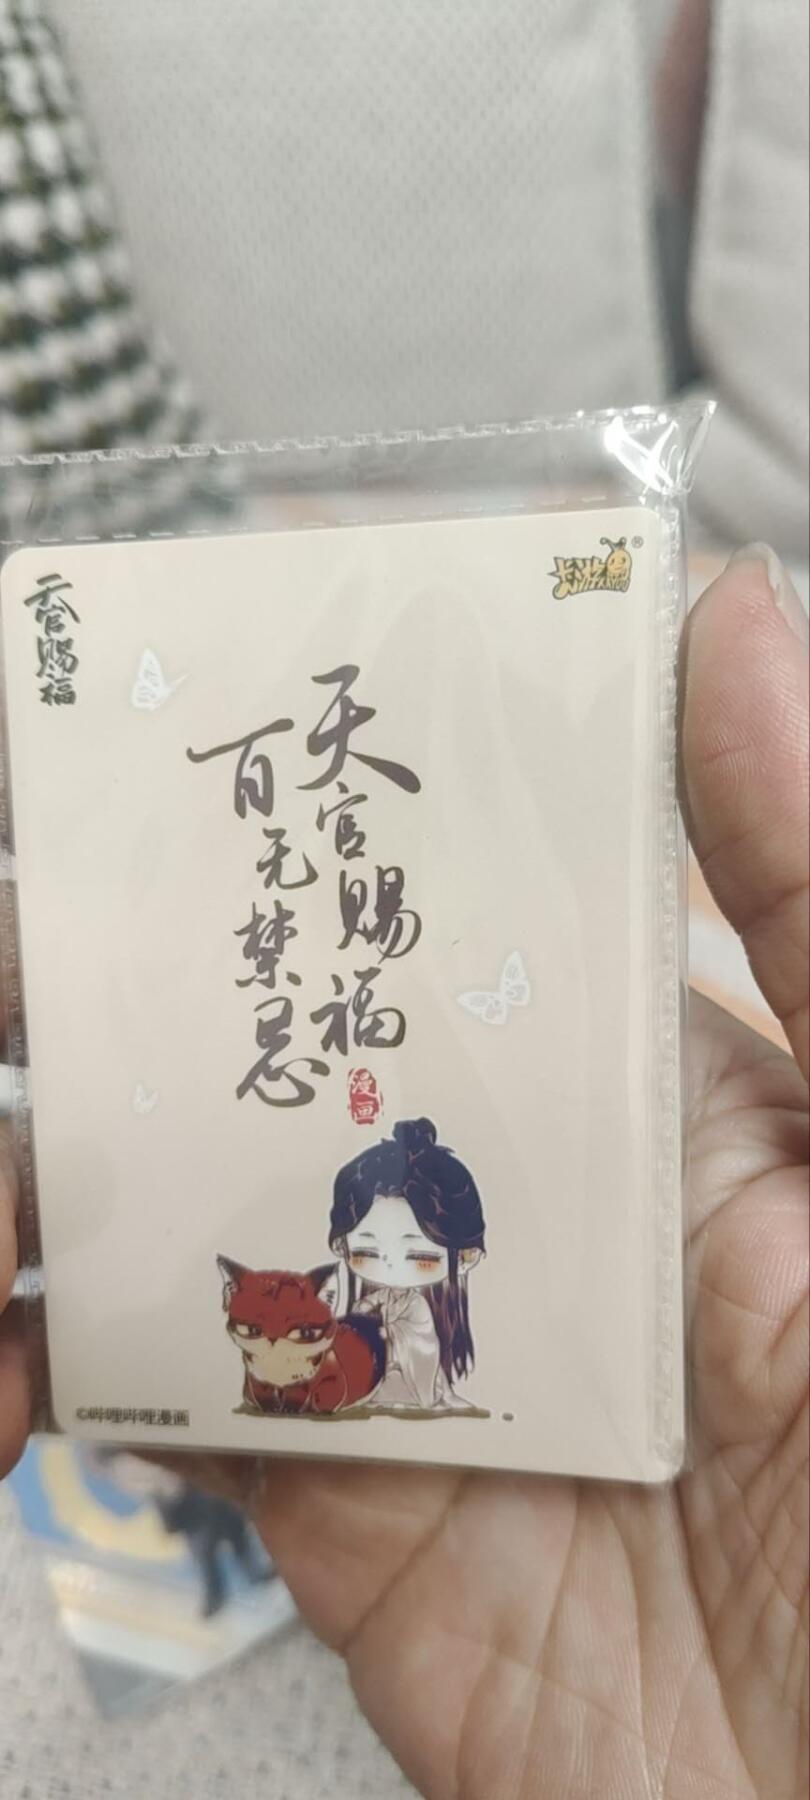 天官赐福
卡游
KAYOU
®
天官赐福
百无禁忌
漫画
©哔哩哔哩漫画